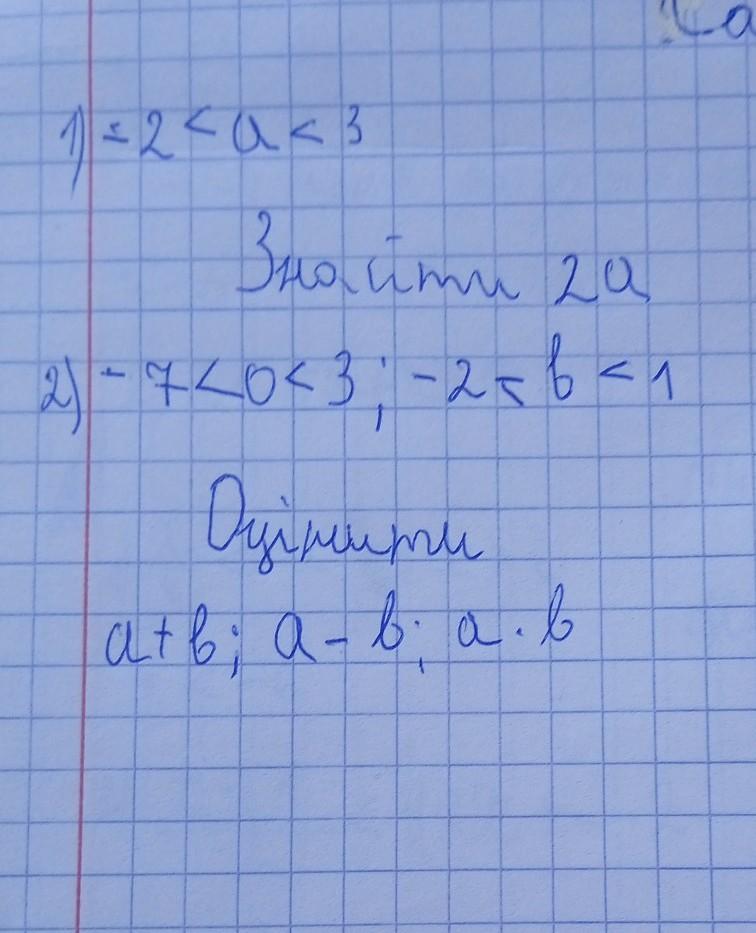 1) -2 < a < 3
Знайти 2a
2) -7 < 0 < 3; -2 < b < 1
Оцінити
a+b; a-b; a·b